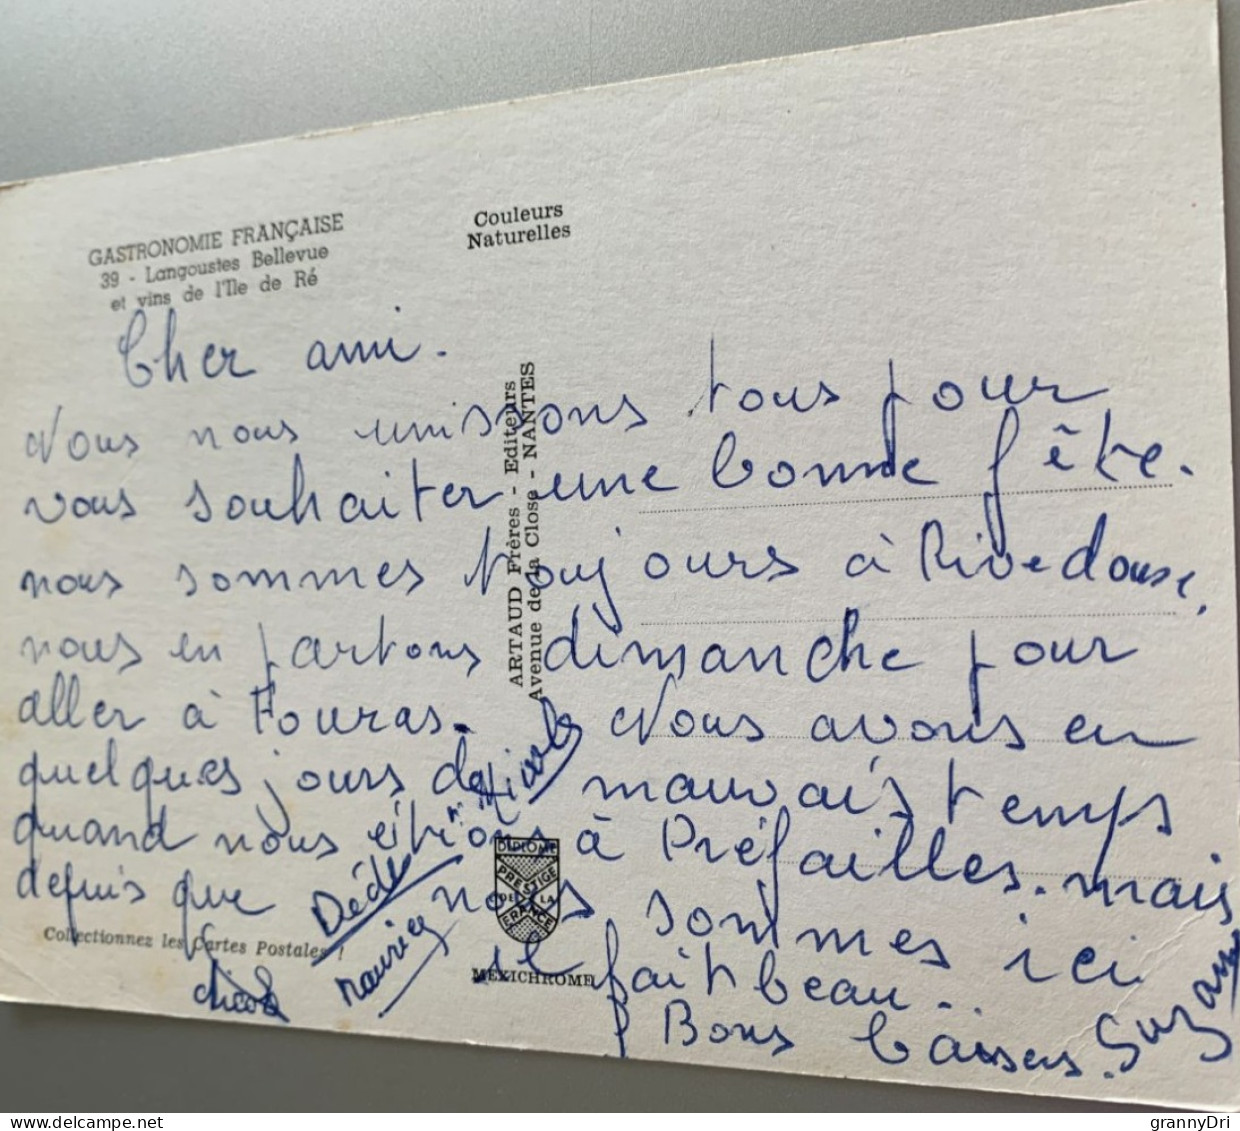 GASTRONOMIE FRANÇAISE
39 - Langoustes Bellevue
et vins de l'Ile de Ré
Couleurs
Naturelles
Cher ami.
Nous nous unissons tous pour
vous souhaiter une bonne fête.
nous sommes toujours à Rivedouse,
nous en partons dimanche pour
aller à Fouras. Nous avons eu
quelques jours de mauvais temps
quand nous étions à Préfailles. mais
depuis que nous sommes ici
il fait beau..
Bons baisers. Suzanne
Dédé
Maurice
Nicole
ARTAUD Frères - Editeurs
Avenue de la Close - NANTES
DIPLOME
PRESTIGE
DE LA
FRANCE
MEXICHROME
Collectionnez les Cartes Postales !
delcampe.net
grannyDri